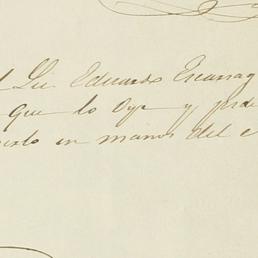 Lic Eduardo Escarrag
que lo oyo y pide
en manos del e